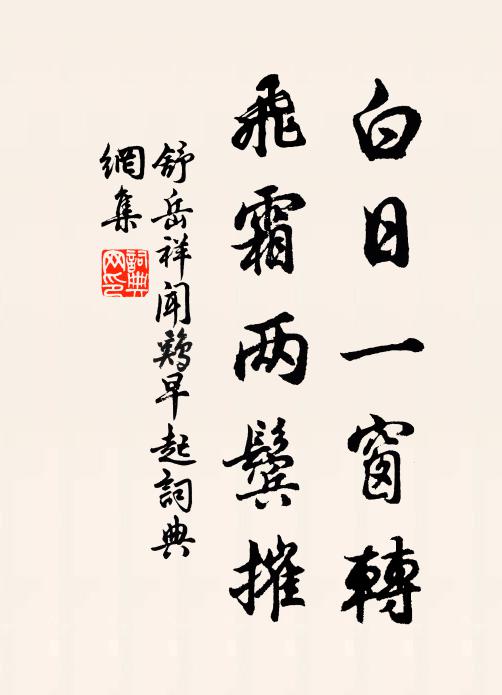 白日一窗轉
飛霜兩鬢摧
舒岳祥聞鷄早起詞典
網集
詞典
网印